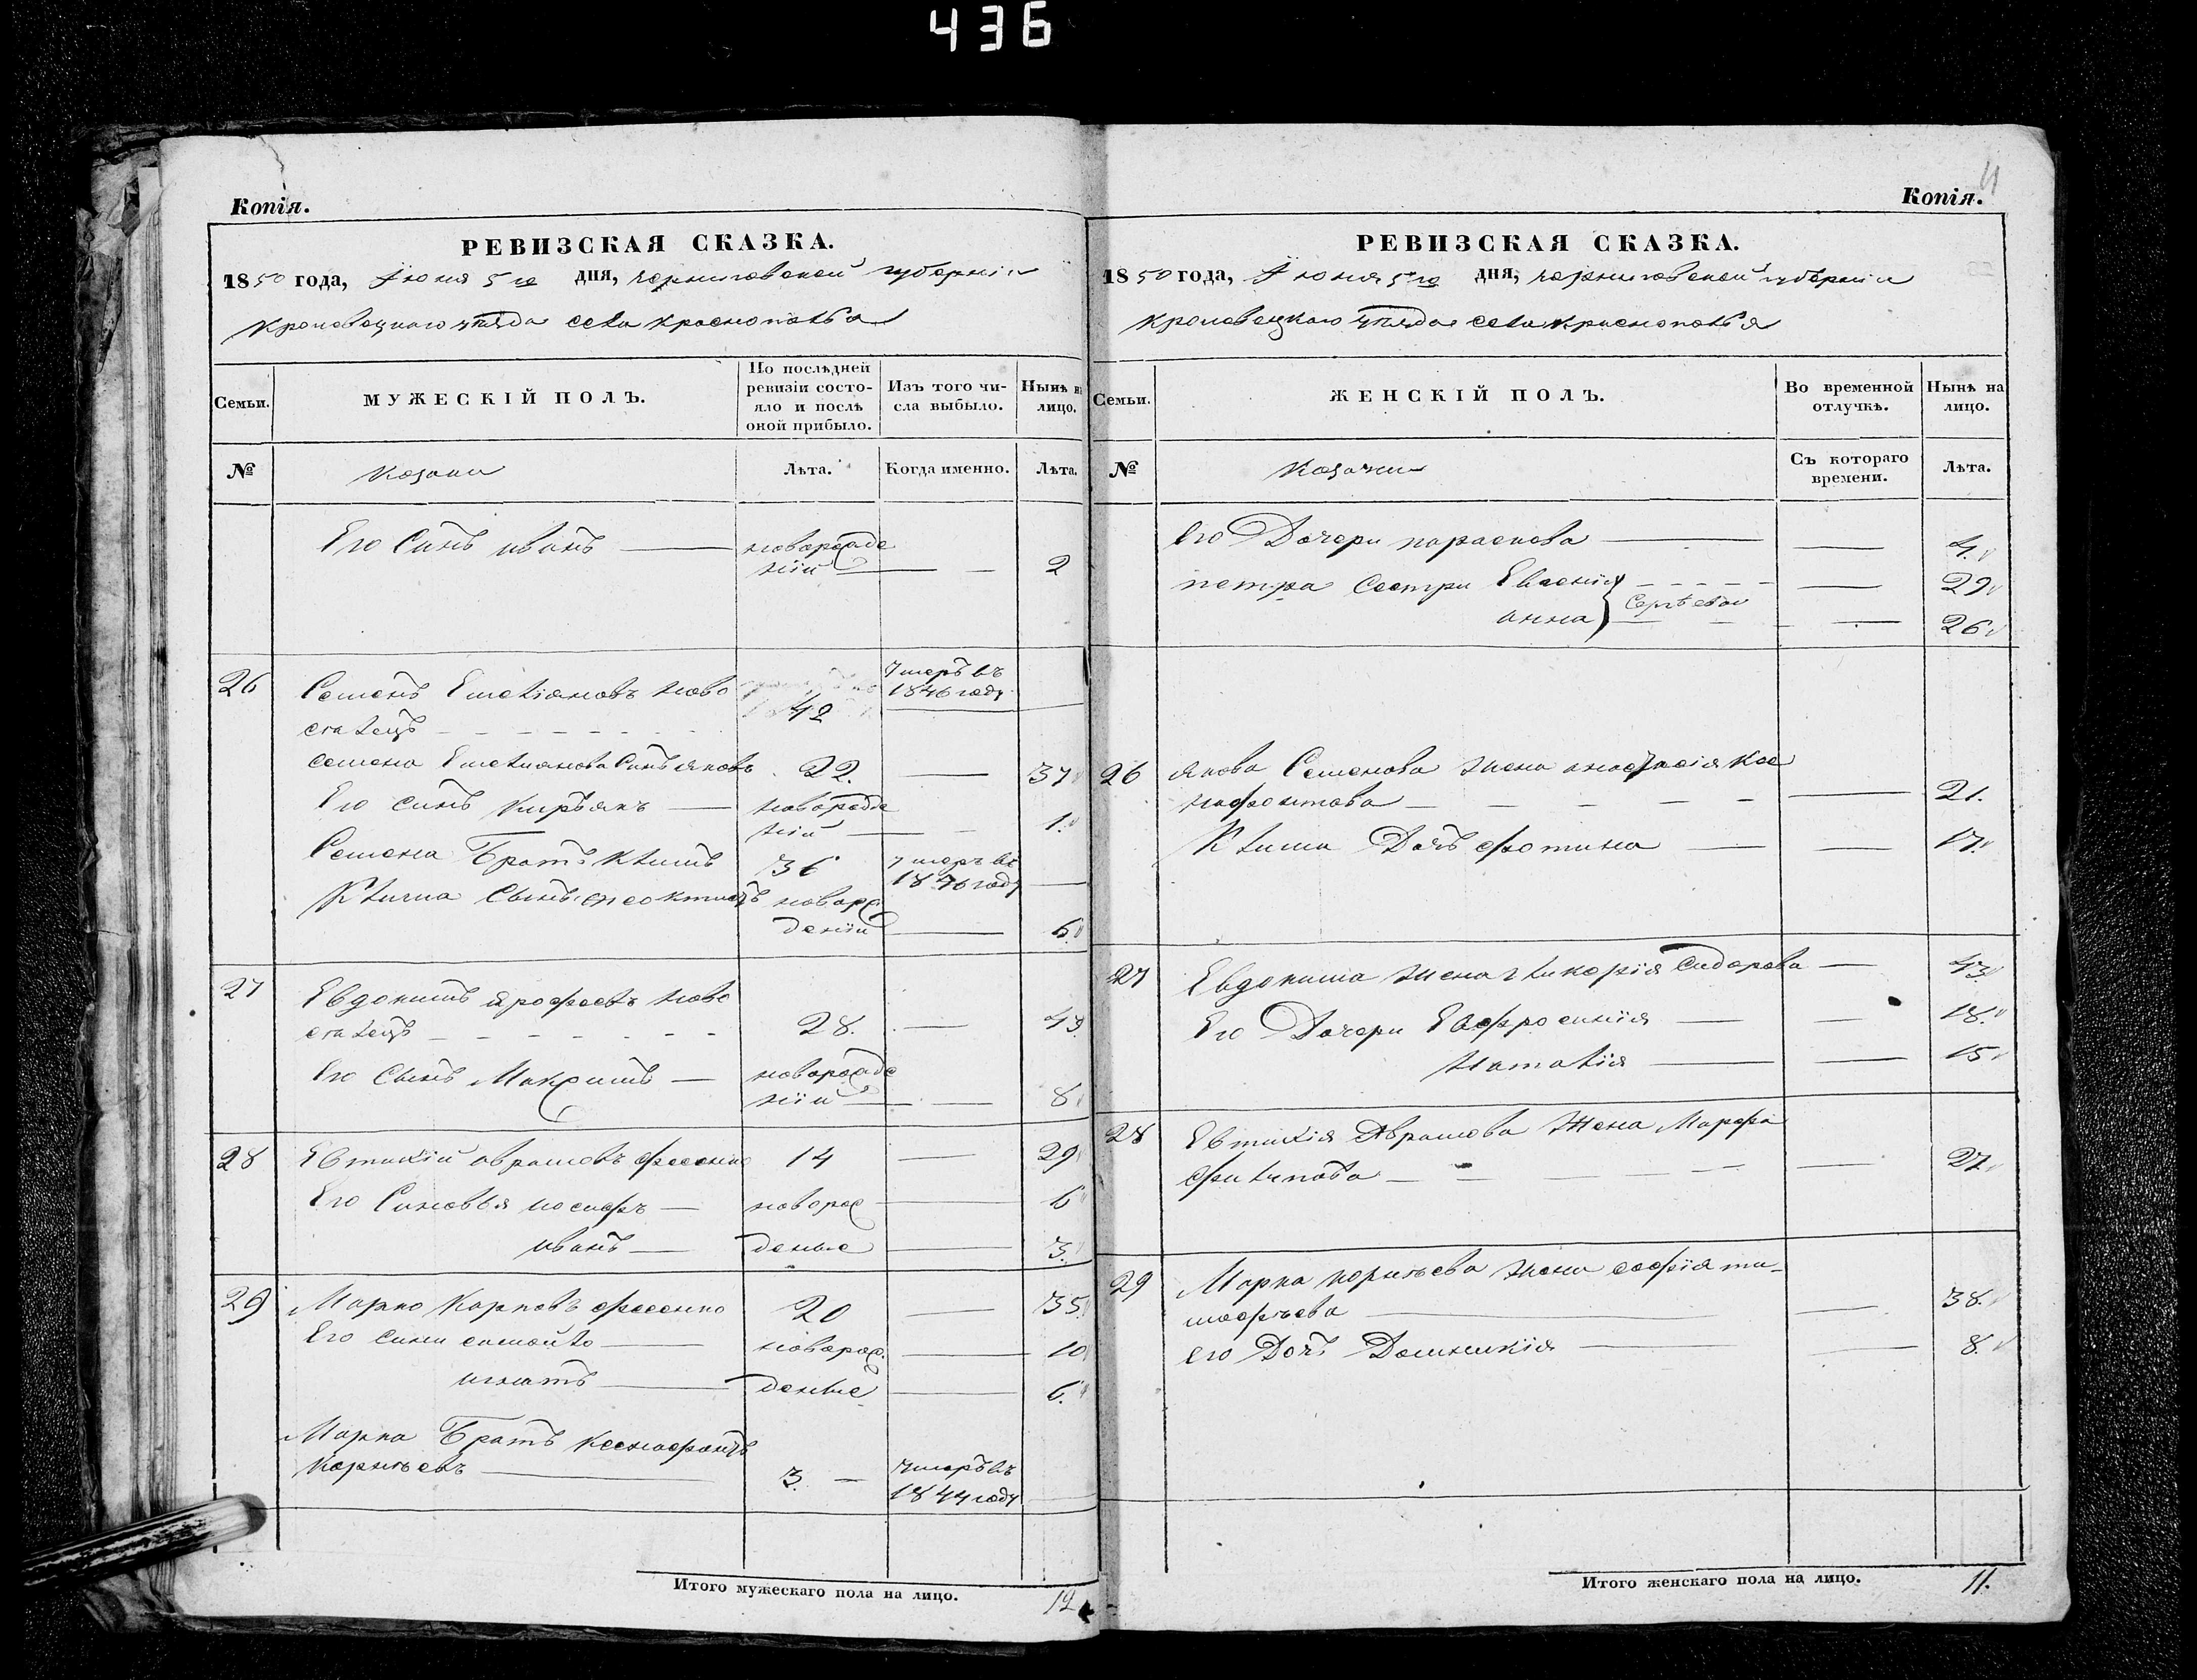 436
Копія.
РЕВИЗСКАЯ СКАЗКА.
1850 года, Июня 5го дня, черниговской губерніи
кролевецкаго уѣзда села краснополья
Семьи.
МУЖЕСКІЙ ПОЛЪ.
По послѣдней ревизіи состояло и послѣ оной прибыло.
Изъ того числа выбыло.
Нынѣ на лицо.
№
козаки
Лѣта.
Когда именно.
Лѣта.
Его Синъ иванъ новорожде
ніи 2
26 Семенъ Емеліановъ ново 42 умеръ въ
1846 году
сталецъ
семена Емелианова Синъ яковъ 22. 37
Его синъ Кирьянъ новорожде
ніи 1.
Семена Братъ Климъ 36 умеръ въ
1846 году
Клима Сынъ новорож
деніи 6.
27 Евдокимъ ярофеевъ ново
сталецъ 28. 43
Его Сынъ Максимъ новорожде
ніи 8
28 Евтихій аврамовъ фесенко 14 29
Его Синовья иосифъ новорож 6
иванъ деные 3.
29 Марко Карповъ фесенко 20 35
Его сини самойло новорож. 10
игнатъ деные 6.
Марка Братъ Ксенофонтъ
Корнѣевъ 3. умеръ въ
1844 году
Итого мужескаго пола на лицо. 12
11
Копія.
РЕВИЗСКАЯ СКАЗКА.
1850 года, Июня 5го дня, черниговской губерніи
кролевецкаго уѣзда села краснополья
Семьи.
ЖЕНСКІЙ ПОЛЪ.
Во временной отлучкѣ.
Нынѣ на лицо.
№
Козачки
Съ котораго времени.
Лѣта.
Его Дочери параскова 4.
петра Сестри Евгенія 29
анна Сергѣевы 26
26 якова Семенова жена анастасія Ксе
нофонтова 21.
Клима Дочь фотина 17.
27 Евдокима жена гликерія Сидорова 43
Его Дочери Евфросинія 18.
Наталія 15
28 Евтихія Аврамова Жена Марфа
филипова 27
29 Марка корнѣева жена софія ти-
мофѣева 38.
его Дочь Домникія 8.
Итого женскаго пола на лицо. 11.